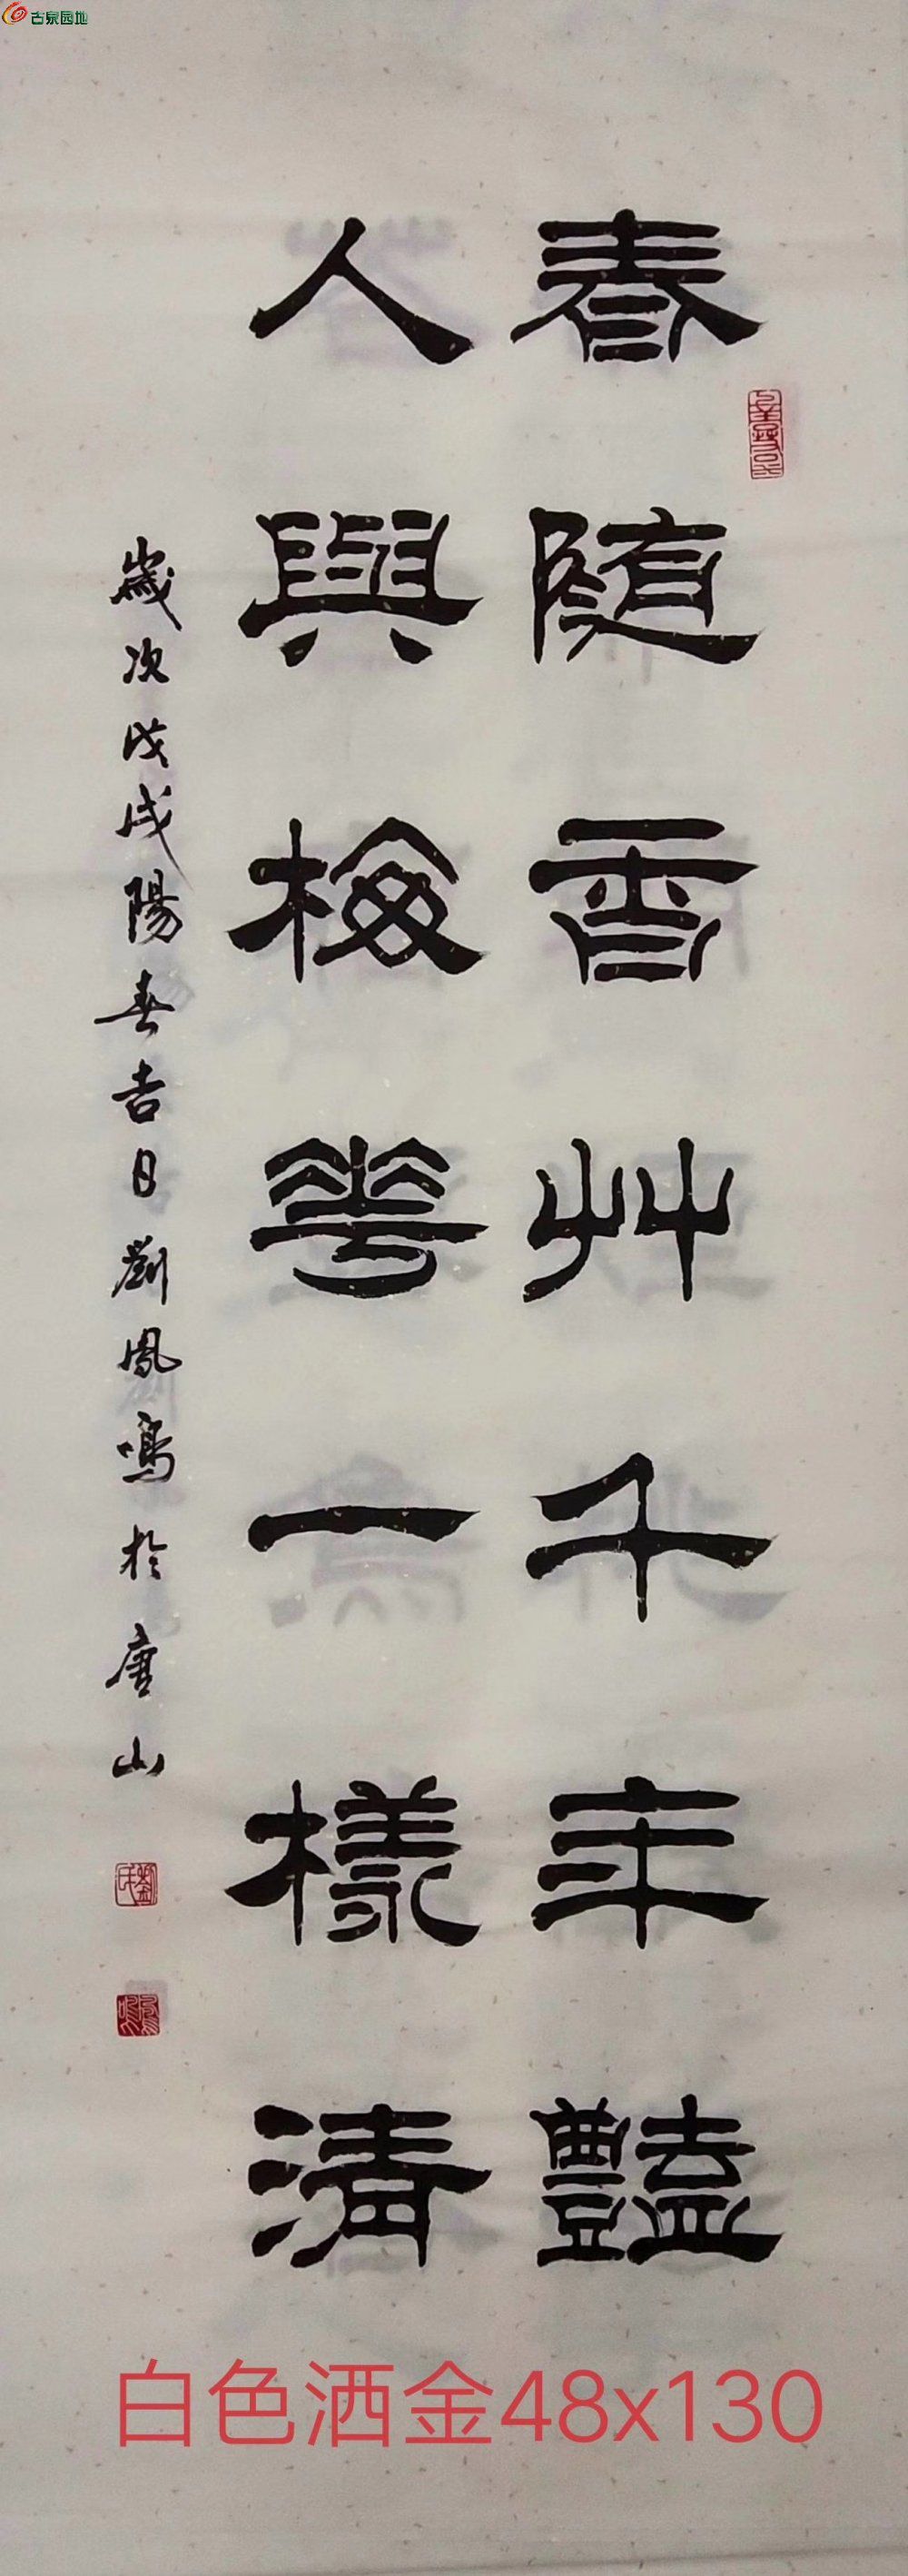 古泉园地
春随香艸千年豔
人與梅花一樣清
歲次戊戌陽春吉日劉鳳鳴於唐山
劉氏
鳳鳴
白色洒金48x130